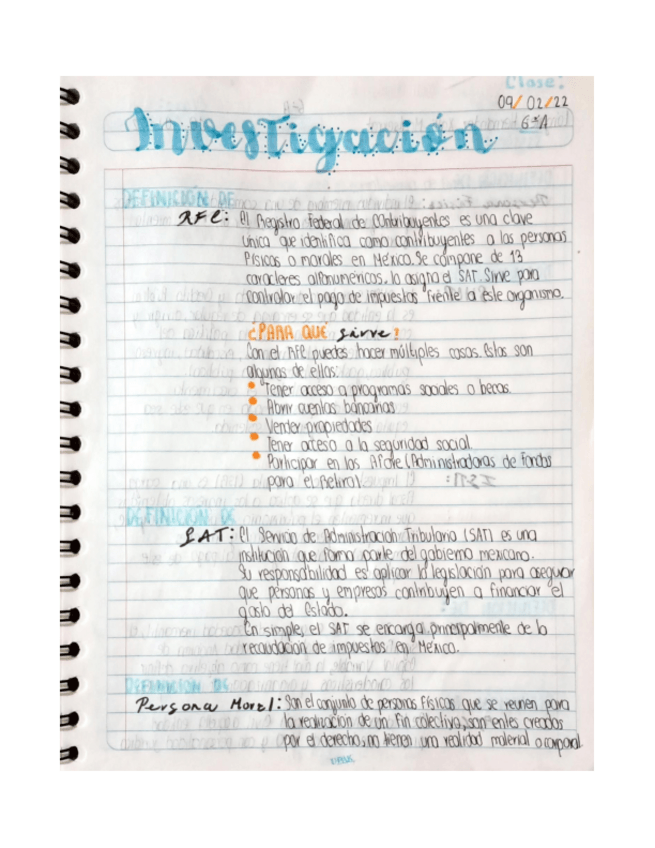 Clase:
09/02/22
6ºA
Investigación
DEFINICIÓN DE
RFC: El Registro Federal de Contribuyentes es una clave
única que identifica como contribuyentes a las personas
físicas o morales en México. Se compone de 13
caracteres alfanuméricos, lo asigna el SAT. Sirve para
controlar el pago de impuestos frente a este organismo.
¿PARA QUÉ sirve?
Con el RFC puedes hacer múltiples cosas. Estas son
algunas de ellas:
Tener acceso a programas sociales o becas
Abrir cuentas bancarias
Vender propiedades
Tener acceso a la seguridad social
Participar en las Afore (Administradoras de Fondos
para el Retiro).
DEFINICIÓN DE
SAT: El Servicio de Administración Tributaria (SAT) es una
institución que forma parte del gobierno mexicano.
Su responsabilidad es aplicar la legislación para asegurar
que personas y empresas contribuyen a financiar el
gasto del Estado.
En simple, el SAT se encarga principalmente de la
recaudación de impuestos en México.
DEFINICIÓN DE
Persona Moral: Son el conjunto de personas físicas que se reunen para
la realización de un fin colectivo, son entes creados
por el derecho, no tienen una realidad material o corporal